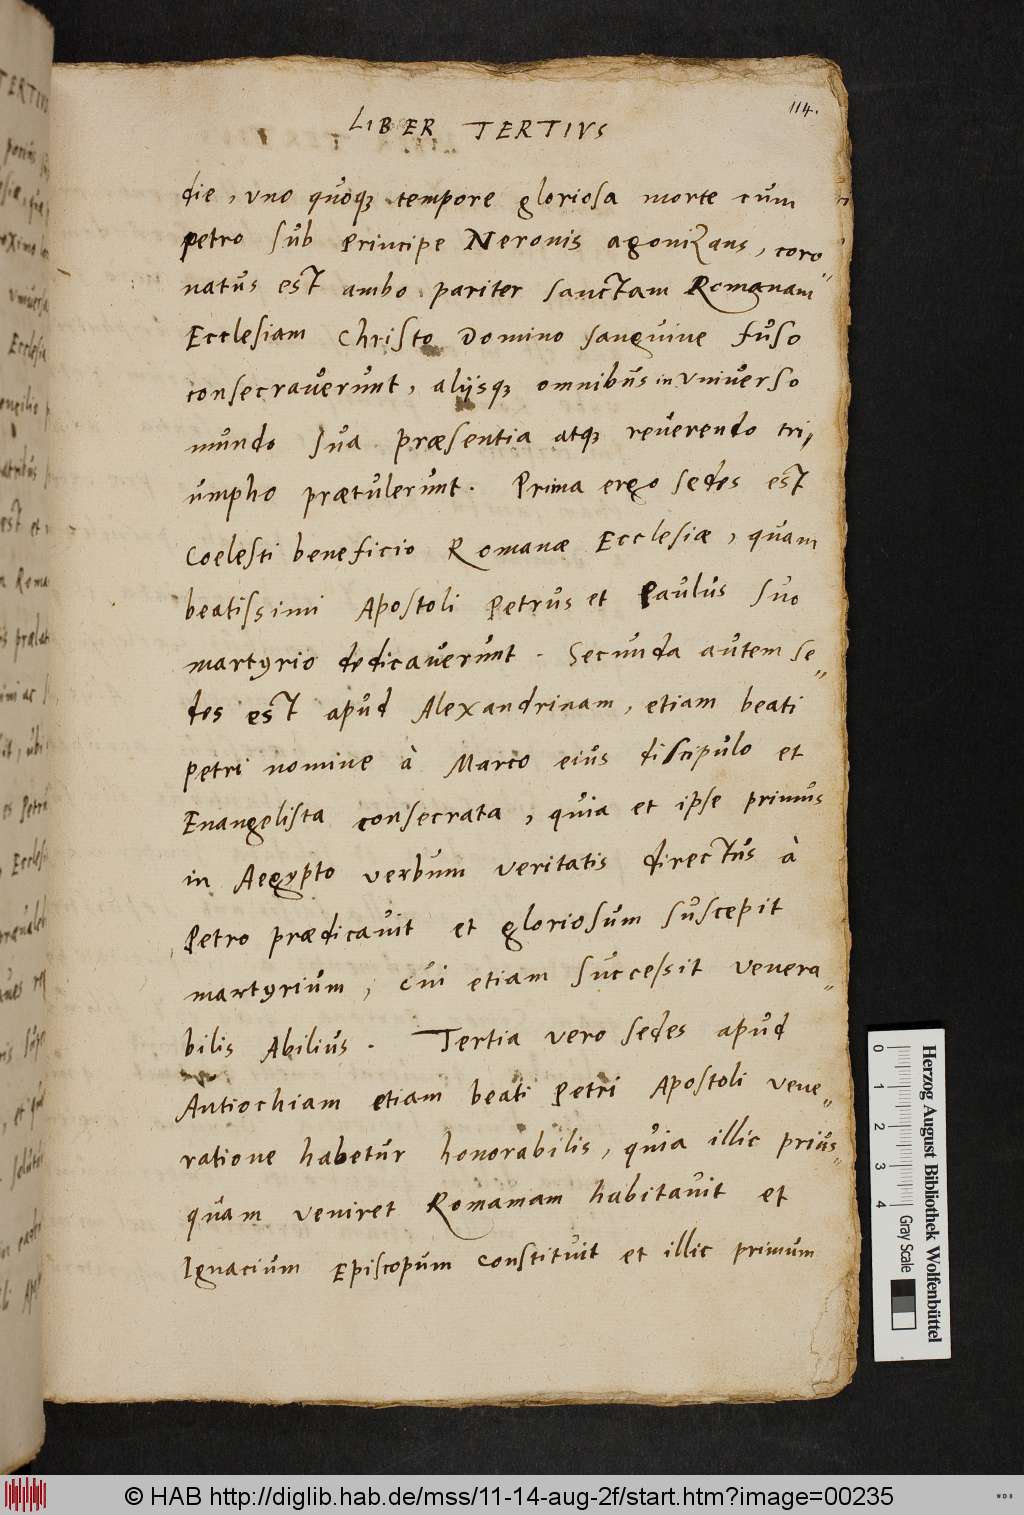 114.
LIBER TERTIVS
die, vno quoq3 tempore gloriosa morte cum
Petro sub Principe Neronis agonizans, coro„
natus est ambo pariter sanctam Romanam
Ecclesiam Christo Domino sanguine fuso
consecraverunt, alijsq3 omnibus in vniverso
mundo sua præsentia atq3 reverendo tri„
umpho prætulerunt. Prima ergo sedes est
Coelesti beneficio Romanæ Ecclesiæ, quam
beatissimi Apostoli Petrus et Paulus suo
martyrio dedicaverunt. Secunda autem se„
des est apud Alexandrinam, etiam beati
Petri nomine à Marco eius discipulo et
Evangelista consecrata, quia et ipse primus
in Aegypto verbum veritatis directus à
Petro prædicavit et gloriosum suscepit
martyrium, cui etiam successit venera„
bilis Abilius. Tertia vero sedes apud
Antiochiam etiam beati Petri Apostoli vene„
ratione habetur honorabilis, quia illic prius„
quam veniret Romamam habitavit et
Ignacium Episcopum constituit et illic primum
Herzog August Bibliothek Wolfenbüttel
0 1 2 3 4 Gray Scale
© HAB http://diglib.hab.de/mss/11-14-aug-2f/start.htm?image=00235